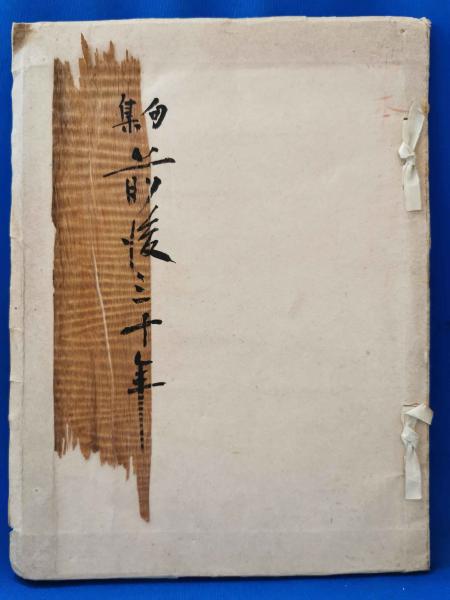 句集
前後三十年